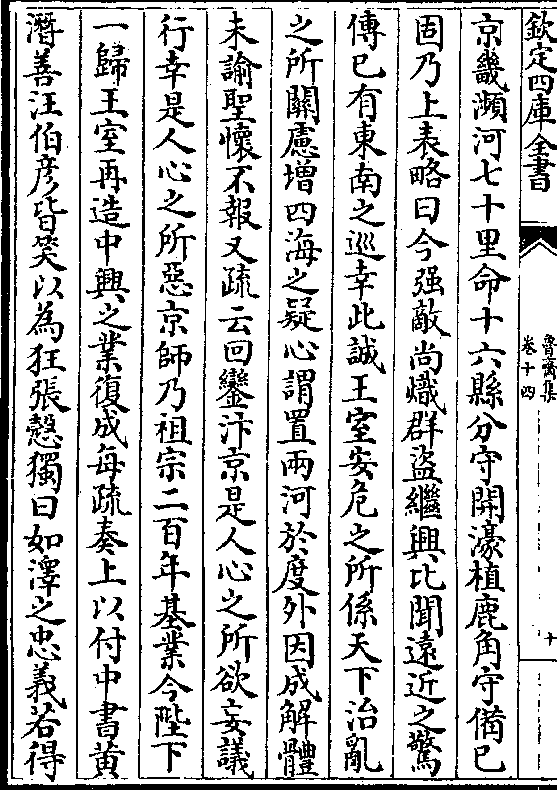 欽定四庫全書
魯齋集
卷十四
十
京畿瀕河七十里命十六縣分守開濠植鹿角守備已
固乃上表略曰今强敵尚熾群盜繼興比聞遠近之驚
傳已有東南之巡幸此誠王室安危之所係天下治亂
之所關慮増四海之疑心謂置兩河於度外因成解體
未諭聖懷不報又疏云回鑾汴京是人心之所欲妄議
行幸是人心之所惡京師乃祖宗二百年基業今陛下
一歸王室再造中興之業復成每疏奏上以付中書黄
潛善汪伯彦皆笑以為狂張慤獨曰如澤之忠義若得